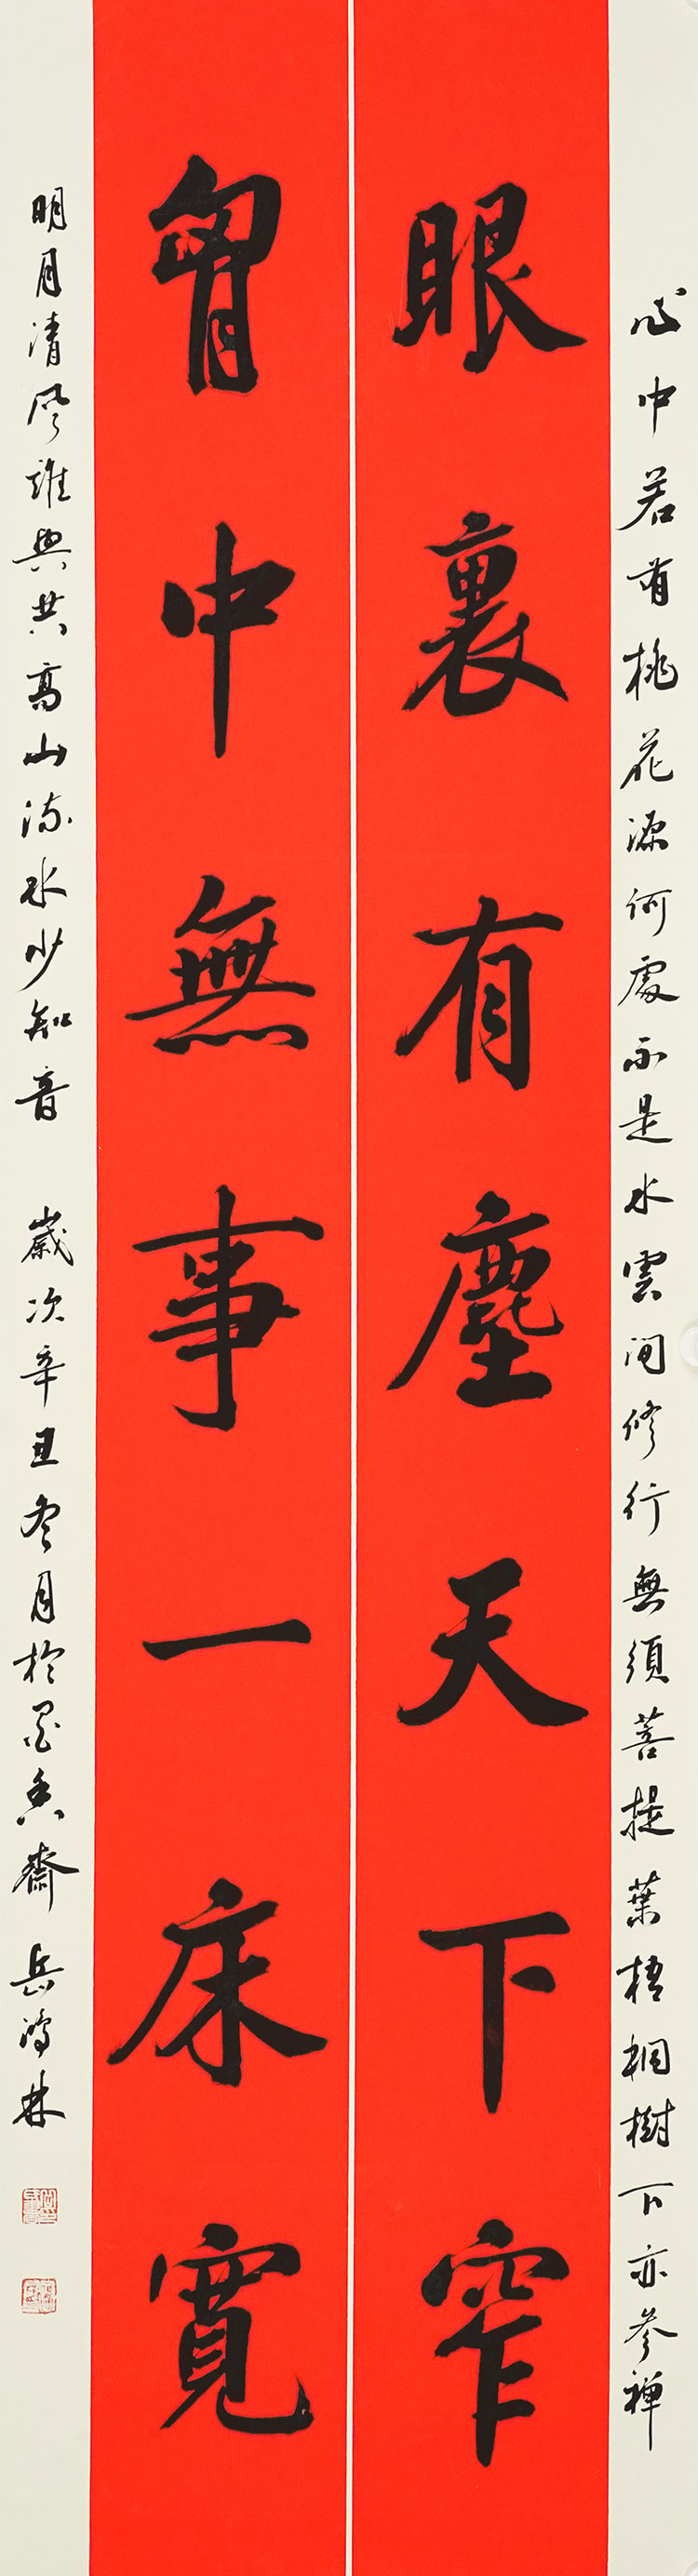 心中若有桃花源何處不是水雲间修行無須菩提葉梧桐樹下亦參禅
眼裏有塵天下窄
胷中無事一床寬
明月清風誰與共高山流水少知音 歲次辛丑冬月於墨香齋 岳鴻林